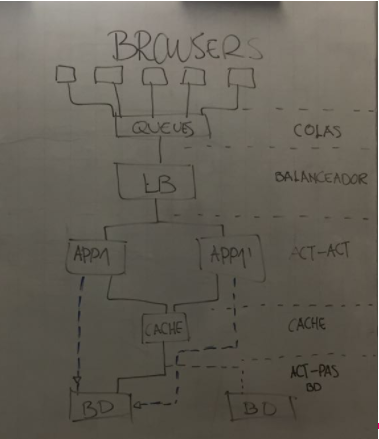 BROWSERS
QUEUES
COLAS
LB
BALANCEADOR
APP1
APP1'
ACT-ACT
CACHE
CACHE
ACT-PAS
BD
BD
BD